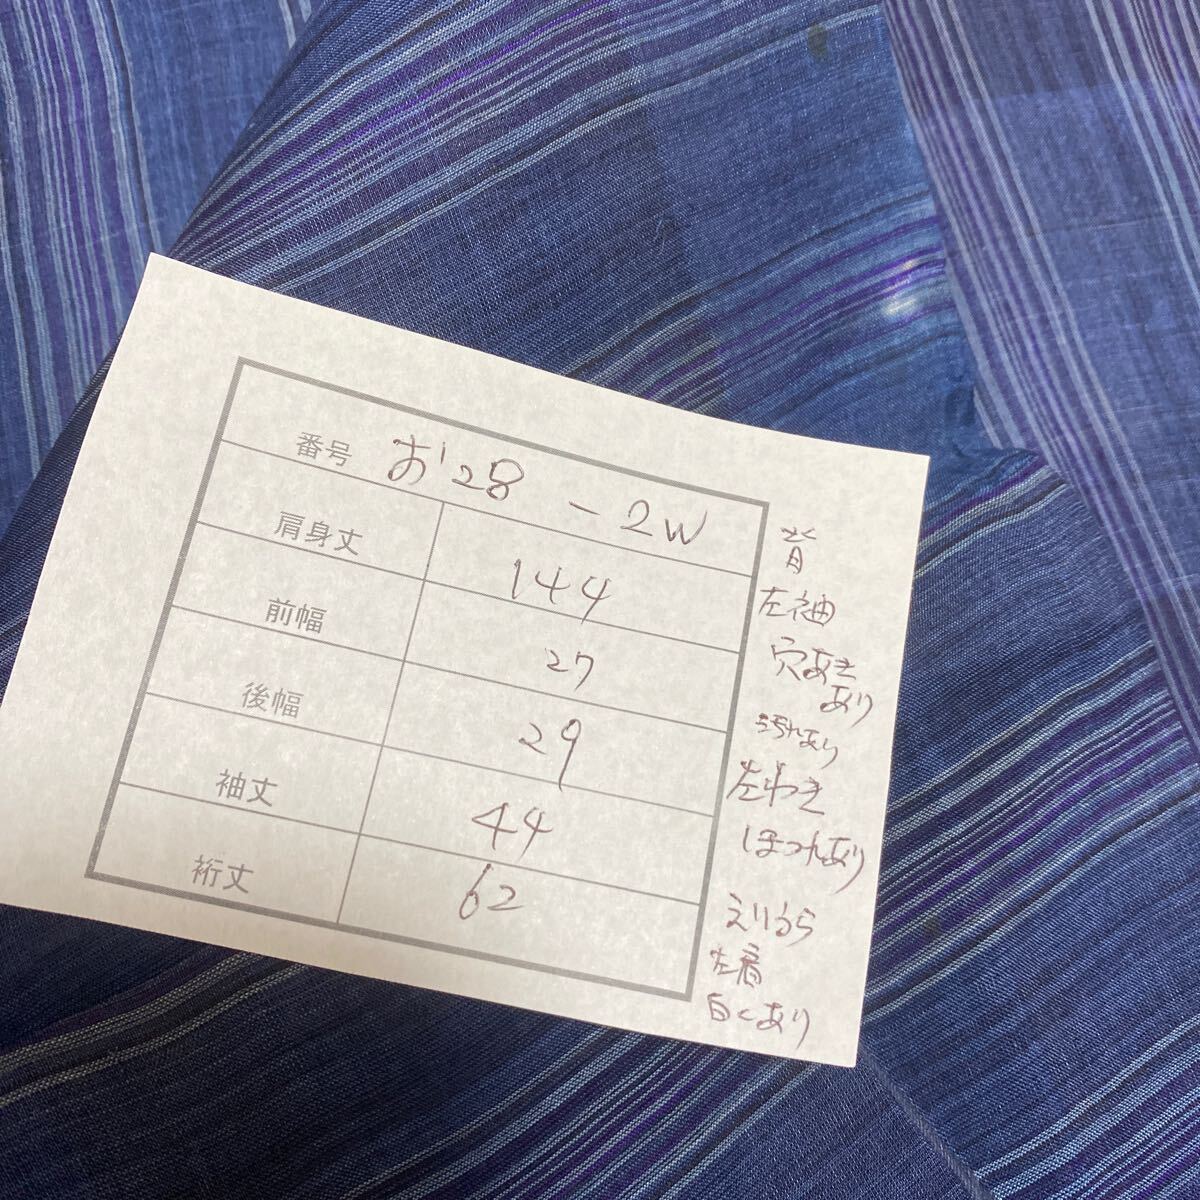 番号 お'28 - 2W
肩身丈 144
前幅 27
後幅 29
袖丈 44
裄丈 62
背
左袖
穴あき
あり
汚れあり
左わき
ほつれあり
えりうら
左肩
白くあり